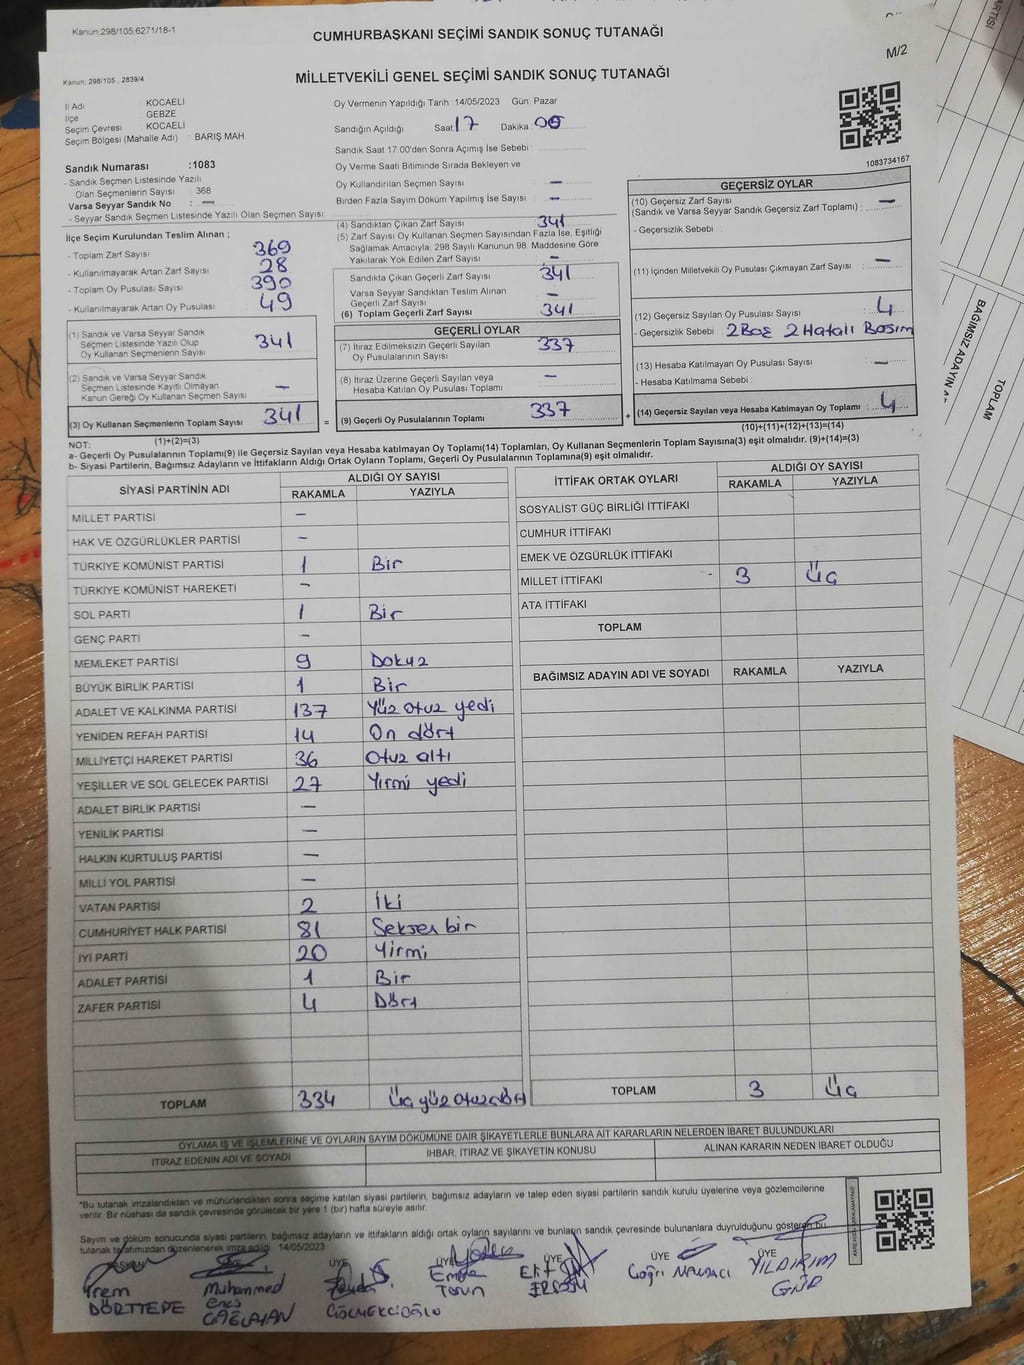 Kanun:298/105;6271/18-1
CUMHURBAŞKANI SEÇİMİ SANDIK SONUÇ TUTANAĞI
M/2
Kanun: 298/105 , 2839/4
MİLLETVEKİLİ GENEL SEÇİMİ SANDIK SONUÇ TUTANAĞI
İl Adı : KOCAELİ
İlçe : GEBZE
Seçim Çevresi : KOCAELİ
Seçim Bölgesi (Mahalle Adı) : BARIŞ MAH.
Oy Vermenin Yapıldığı Tarih :14/05/2023 Gün: Pazar
Sandığın Açıldığı Saat: 17 Dakika: 00
Sandık Saat 17:00'den Sonra Açımış İse Sebebi :
Oy Verme Saati Bitiminde Sırada Bekleyen ve
Oy Kullandırılan Seçmen Sayısı : —
Birden Fazla Sayım Döküm Yapılmış İse Sayısı : —
1083734167
Sandık Numarası :1083
- Sandık Seçmen Listesinde Yazılı
Olan Seçmenlerin Sayısı : 368
Varsa Seyyar Sandık No : —
- Seyyar Sandık Seçmen Listesinde Yazılı Olan Seçmen Sayısı:
İlçe Seçim Kurulundan Teslim Alınan ;
- Toplam Zarf Sayısı : 369
- Kullanılmayarak Artan Zarf Sayısı : 28
- Toplam Oy Pusulası Sayısı : 390
- Kullanılmayarak Artan Oy Pusulası : 49
(1) Sandık ve Varsa Seyyar Sandık
Seçmen Listesinde Yazılı Olup
Oy Kullanan Seçmenlerin Sayısı : 341
(2) Sandık ve Varsa Seyyar Sandık
Seçmen Listesinde Kayıtlı Olmayan
Kanun Gereği Oy Kullanan Seçmen Sayısı : —
(3) Oy Kullanan Seçmenlerin Toplam Sayısı : 341
(1)+(2)=(3)
(4) Sandıktan Çıkan Zarf Sayısı : 341
(5) Zarf Sayısı Oy Kullanan Seçmen Sayısından Fazla İse, Eşitliği
Sağlamak Amacıyla, 298 Sayılı Kanunun 98. Maddesine Göre
Yakılarak Yok Edilen Zarf Sayısı : —
Sandıkta Çıkan Geçerli Zarf Sayısı : 341
Varsa Seyyar Sandıktan Teslim Alınan
Geçerli Zarf Sayısı : —
(6) Toplam Geçerli Zarf Sayısı : 341
GEÇERLİ OYLAR
(7) İtiraz Edilmeksizin Geçerli Sayılan
Oy Pusulalarının Sayısı : 337
(8) İtiraz Üzerine Geçerli Sayılan veya
Hesaba Katılan Oy Pusulası Toplamı : —
= (9) Geçerli Oy Pusulalarının Toplamı : 337
GEÇERSİZ OYLAR
(10) Geçersiz Zarf Sayısı : —
(Sandık ve Varsa Seyyar Sandık Geçersiz Zarf Toplamı)
- Geçersizlik Sebebi :
(11) İçinden Milletvekili Oy Pusulası Çıkmayan Zarf Sayısı : —
(12) Geçersiz Sayılan Oy Pusulası Sayısı : 4
- Geçersizlik Sebebi : 2 Boş 2 Hatalı Basım
(13) Hesaba Katılmayan Oy Pusulası Sayısı : —
- Hesaba Katılmama Sebebi :
+ (14) Geçersiz Sayılan veya Hesaba Katılmayan Oy Toplamı : 4
(10)+(11)+(12)+(13)=(14)
NOT:
a- Geçerli Oy Pusulalarının Toplamı(9) ile Geçersiz Sayılan veya Hesaba katılmayan Oy Toplamı(14) Toplamları, Oy Kullanan Seçmenlerin Toplam Sayısına(3) eşit olmalıdır. (9)+(14)=(3)
b- Siyasi Partilerin, Bağımsız Adayların ve İttifakların Aldığı Ortak Oyların Toplamı, Geçerli Oy Pusulalarının Toplamına(9) eşit olmalıdır.
SİYASİ PARTİNİN ADI ALDIĞI OY SAYISI
RAKAMLA YAZIYLA
MİLLET PARTİSİ —
HAK VE ÖZGÜRLÜKLER PARTİSİ —
TÜRKİYE KOMÜNİST PARTİSİ 1 Bir
TÜRKİYE KOMÜNİST HAREKETİ —
SOL PARTİ 1 Bir
GENÇ PARTİ —
MEMLEKET PARTİSİ 9 Dokuz
BÜYÜK BİRLİK PARTİSİ 1 Bir
ADALET VE KALKINMA PARTİSİ 137 Yüz otuz yedi
YENİDEN REFAH PARTİSİ 14 On dört
MİLLİYETÇİ HAREKET PARTİSİ 36 Otuz altı
YEŞİLLER VE SOL GELECEK PARTİSİ 27 Yirmi yedi
ADALET BİRLİK PARTİSİ —
YENİLİK PARTİSİ —
HALKIN KURTULUŞ PARTİSİ —
MİLLİ YOL PARTİSİ —
VATAN PARTİSİ 2 İki
CUMHURİYET HALK PARTİSİ 81 Seksen bir
İYİ PARTİ 20 Yirmi
ADALET PARTİSİ 1 Bir
ZAFER PARTİSİ 4 Dört
TOPLAM 334 Üç yüz otuz dört
İTTİFAK ORTAK OYLARI ALDIĞI OY SAYISI
RAKAMLA YAZIYLA
SOSYALİST GÜÇ BİRLİĞİ İTTİFAKI
CUMHUR İTTİFAKI
EMEK VE ÖZGÜRLÜK İTTİFAKI
MİLLET İTTİFAKI 3 Üç
ATA İTTİFAKI
TOPLAM
BAĞIMSIZ ADAYIN ADI VE SOYADI RAKAMLA YAZIYLA
TOPLAM 3 Üç
OYLAMA İŞ VE İŞLEMLERİNE VE OYLARIN SAYIM DÖKÜMÜNE DAİR ŞİKAYETLERLE BUNLARA AİT KARARLARIN NELERDEN İBARET BULUNDUKLARI
İTİRAZ EDENİN ADI VE SOYADI İHBAR, İTİRAZ VE ŞİKAYETİN KONUSU ALINAN KARARIN NEDEN İBARET OLDUĞU
*Bu tutanak imzalandıktan ve mühürlendikten sonra seçime katılan siyasi partilerin, bağımsız adayların ve talep eden siyasi partilerin sandık kurulu üyelerine veya gözlemcilerine
verilir. Bir nüshası da sandık çevresinde görülecek bir yere 1 (bir) hafta süreyle asılır.
Sayım ve döküm sonucunda siyasi partilerin, bağımsız adayların ve ittifakların aldığı ortak oyların sayılarını ve bunların sandık çevresinde bulunanlara duyrulduğunu gösteren bu
tutanak tarafımızdan düzenlenerek imza edildi. 14/05/2023
BAŞKAN ÜYE ÜYE ÜYE ÜYE ÜYE ÜYE
İrem DÖRTTEPE
Muhammed Enes ÇAĞLAYAN
Emine Torun
Elif
Çağrı
YILDIRIM GÜR
BAĞIMSIZ ADAYIN
TOPLAM